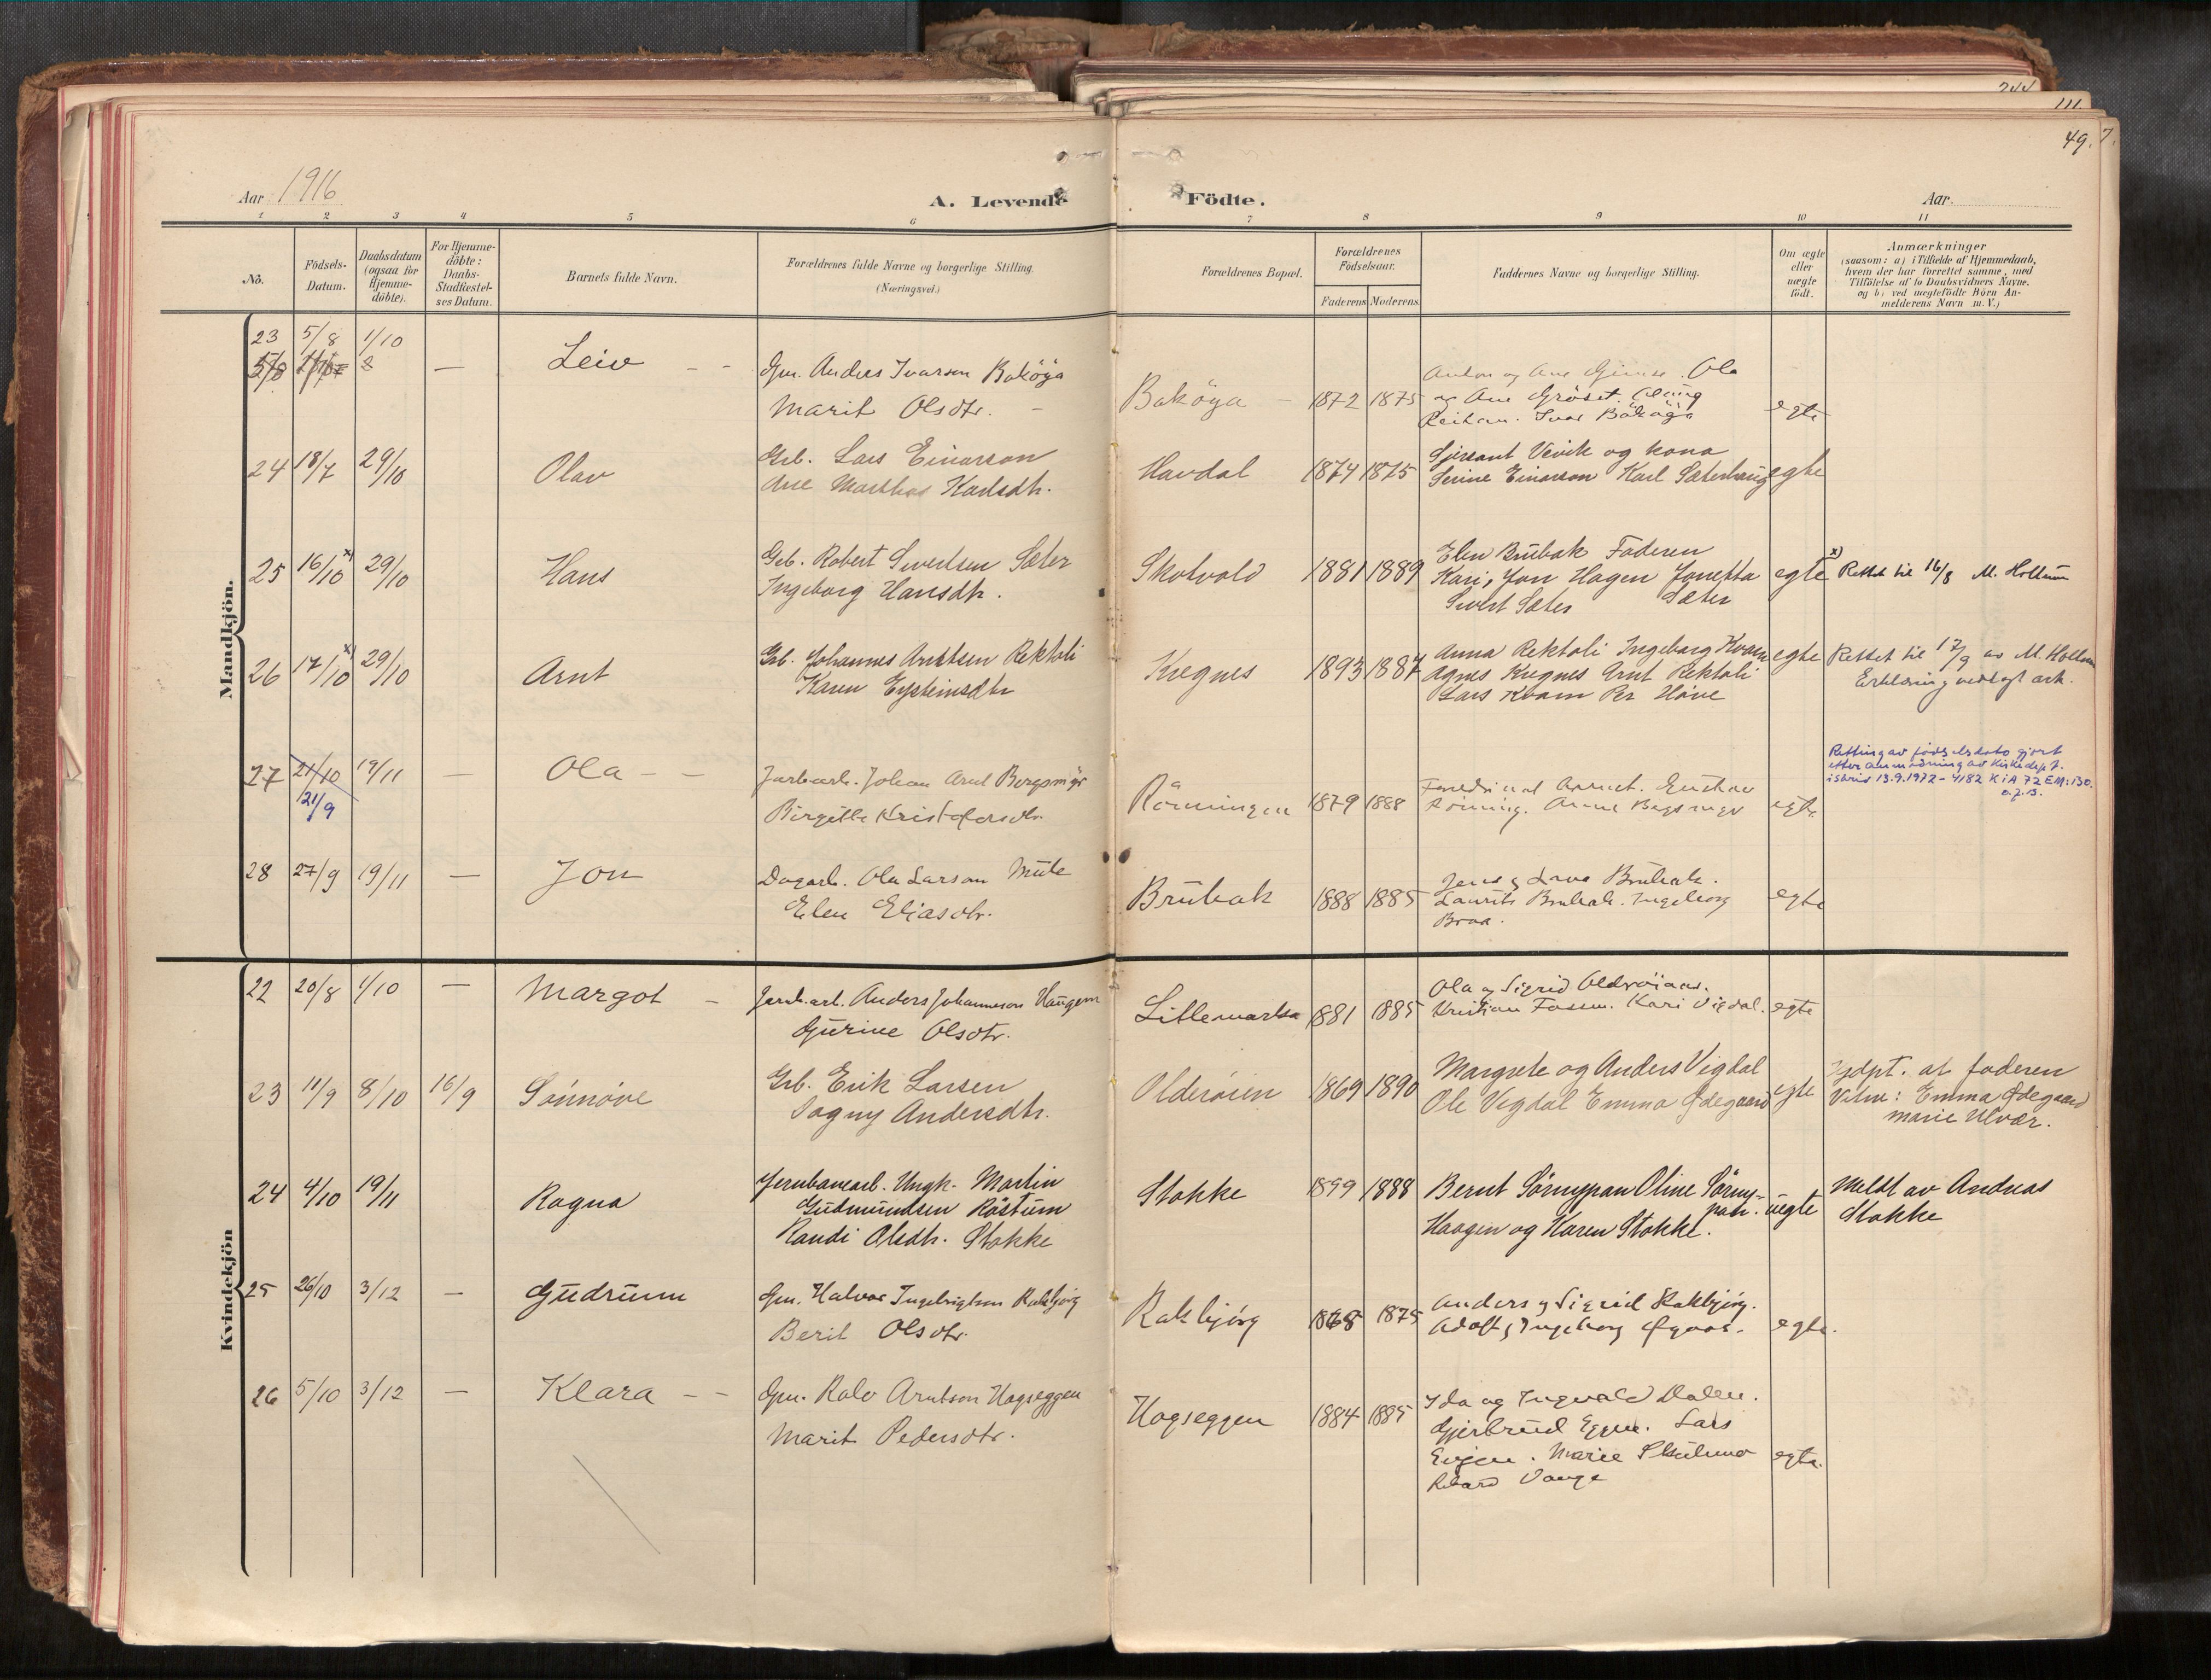 244
111.
49. 7.
Aar 1916
A. Levende Födte.
Aar.
1 2 3 4 5 6 7 8 9 10 11
No.
Födsels-
Datum.
Daabsdatum
(ogsaa for
Hjemme-
döbte).
For Hjemme-
döbte:
Daabs-
Stadfæstel-
ses Datum.
Barnets fulde Navn.
Forældrenes fulde Navne og borgerlige Stilling.
(Næringsvei.)
Forældrenes Bopæl.
Forældrenes
Födselsaar.
Faderens Moderens
Faddernes Navne og borgerlige Stilling.
Om ægte
eller
uægte
födt.
Anmærkninger
(saasom: a) i Tilfælde af Hjemmedaab,
hvem der har forrettet samme, med
Tilföielse af to Daabsvidners Navne,
og b) ved uægtefödte Börn An-
melderens Navn m. V.)
Mandkjön.
23 5/8 1/10
— Leiv - -
Gm. Anders Ivarson Boköya
Marit Olsdtr. -
Boköya - 1872 1875
Anton og Ane Gimse. Ola
og Ane Gröset.
Reitan. Ivar Boköya
egte
24 18/7 29/10 Olav
Grb. Lars Einarson
Ane Marthas Karlsdtr.
Havdal 1874 1875
Sjersant Vevik og kona
Serine Einarson Karl Sæterhaug egte
25 16/10 x) 29/10 Hans
Grb. Robert Sivertsen Sæter
Ingeborg Hansdtr.
Skotvold 1881 1889
Elen Brubak Faderen
Kari, Jon Hagen Jonetta
Sivert Sæter Sæter
egte x) Rettet til 16/8 M. Hollum
26 17/10 x) 29/10 Arnt
Grb. Johannes Arntsen Rektoli
Karen Eysteinsdtr
Kregnes 1893 1887
Anna Rektoli Ingeborg Kvam
Agnes Kregnes Arnt Rektoli
Lars Kvam Per Hove
egte Rettet til 17/9 av M. Hollum
Erklæring vedlagt ark.
27 21/10 19/11 — Ola - -
21/9
Jarbarb. Johan Arnt Bergsmyr
Birgitte Kristofersdtr.
Rönningen 1879 1888
Gustav
Rönning. Anne Bergsmyr
egte
Retting av fødselsdato gjort
etter anmodning av Kirkedept.
i skriv 13.9.1972 - 4182 K i A 72 EM:130.
28 27/9 19/11 — Jon
Dagarb. Ola Larson Mule
Elen Eliasdtr.
Brubak 1888 1885
Jens og Brubak.
Laurits Brubak. Ingeborg
Braa.
egte
Kvindekjön
22 20/8 1/10 — Margot -
Jernb.arb. Anders Johanneson Haugen
Gurine Olsdtr.
Litlemarka 1881 1885
Ola og Sigrid Olderöiaas.
Kristian Fossum. Kari Vigdal. egte
23 11/9 8/10 16/9 Sönnöve
Grb. Erik Larsen
Dagny Andersdtr.
Olderöien 1869 1890
Margrete og Anders Vigdal
Ole Vigdal Emma Ødegaard egte
Hjdpt. at faderen
Vitne: Emma Ødegaard
Marie Ulvær.
24 4/10 19/11 Ragna
Jernbanearb. Ungk. Martin
Gudmundsen Röstum
Randi Olsdtr. Stokke
Stokke 1899 1888
Bernt Sörnypan Oline Sörny-
pan.
Haagen og Karen Stokke.
uegte Meldt av Andreas
Stokke
25 26/10 3/12 — Gudrunn
Gm. Halvor Ingebrigtson Rakbjörg
Berit Olsdtr.
Rakbjörg 1868 1875
Anders og Sigrid Rakbjörg.
Adolf og Ingeborg
egte.
26 5/10 3/12 — Klara - -
Gm. Kalv Arntson Hogseggen
Marit Pedersdtr.
Hogseggen 1884 1885
Ida og Ingvald Dalen.
Gjertrud Eggen. Lars
Evjen. Marie
Vange
egte.